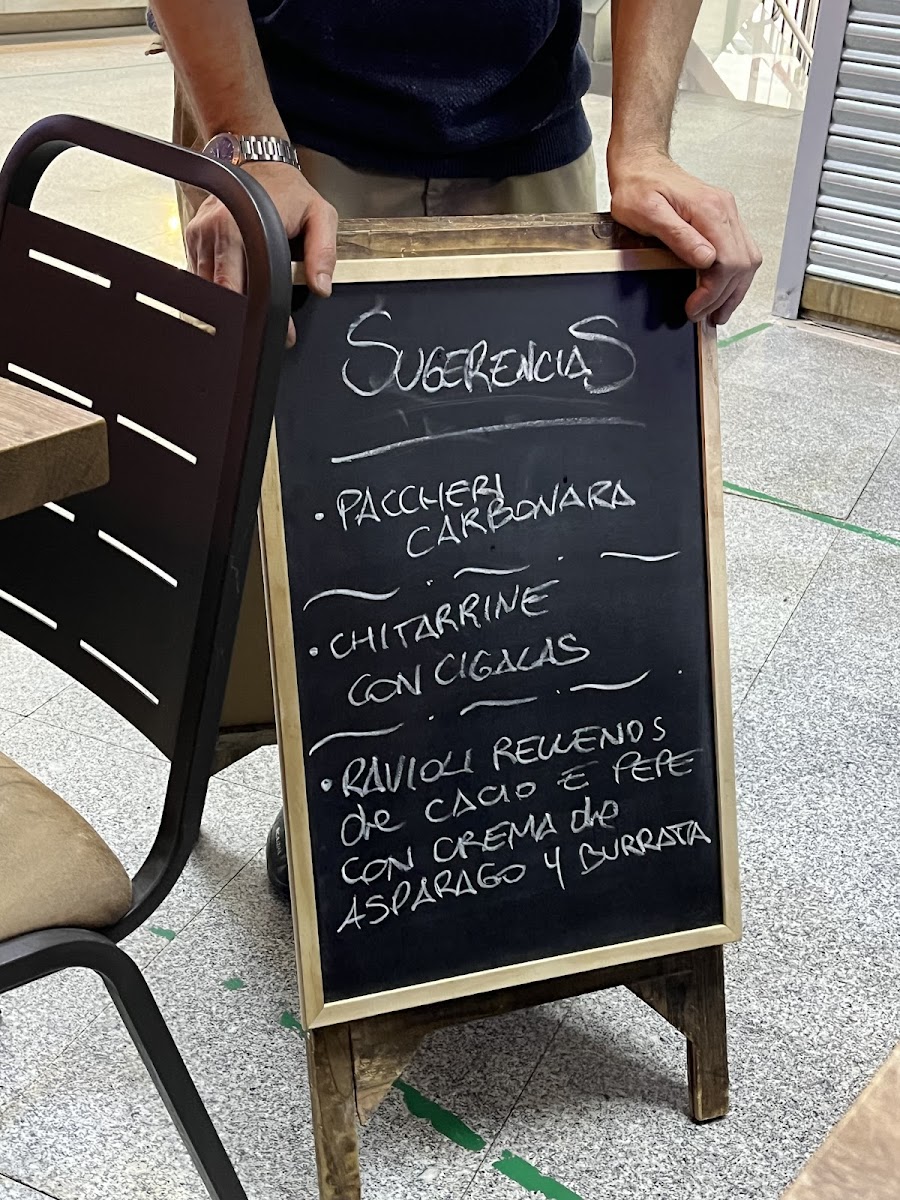 SUGERENCIAS
· PACCHERI
CARBONARA
· CHITARRINE
CON CIGALAS
· RAVIOLI RELLENOS
de CACIO E PEPE
CON CREMA de
ASPARAGO Y BURRATA